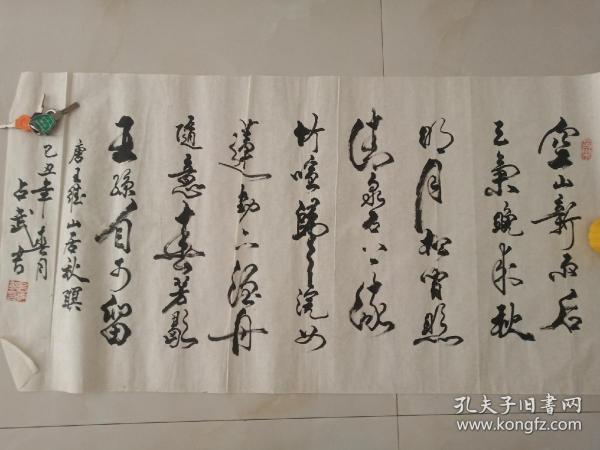 空山新雨后
天气晚来秋
明月松间照
清泉石上流
竹喧归浣女
莲动下渔舟
随意春芳歇
王孙自可留
唐王维山居秋暝
己丑年春月
占武书
孔夫子旧书网
www.kongfz.com